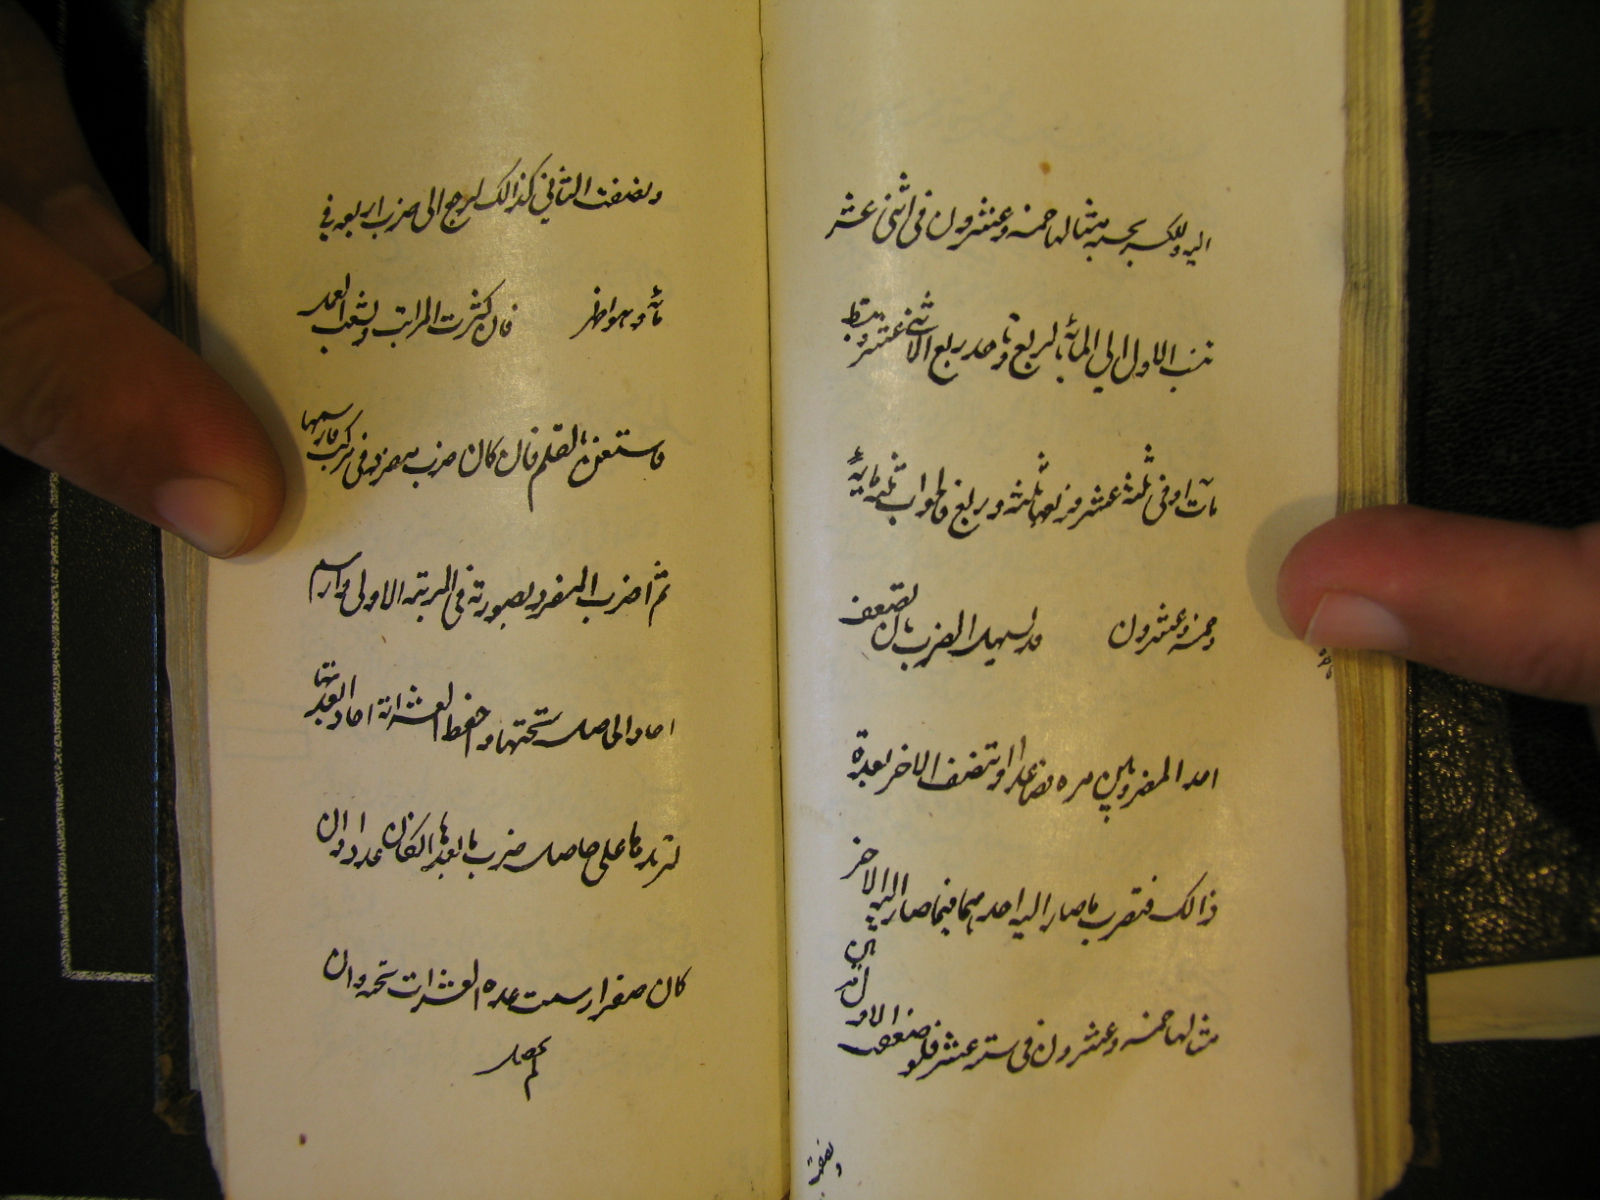 اليه وللكسر بحسبه مثالها خمسة وعشرون في اثني عشر
تنسب الاول الى المائة بالربع وتاخذ ربع الاثني عشر وتبسط
مآت او في ثلثة عشر فربعها ثلثة وربع فالجواب ثلثمائة
وخمسة وعشرون قد يسهل الضرب بان تضعف
احد المضروبين مرة فصاعدا وتنصف الاخر بعدة
ذالك فتضرب ما صار اليه احدهما فيما صار اليه الاخر
مثالها خمسة وعشرون في ستة عشر فلو ضعفت الاول مرتين
ونصفت
ونصفت الثاني كذالك لرجع الى ضرب اربعة في
مائة وهو اظهر فان كثرت المراتب وتشعب العمل
فاستعن بالقلم فان كان ضرب مفرد في مركب فارسمهما
ثم اضرب المفرد بصورته في المرتبة الاولى وارسم
احاد الحاصل تحتها واحفظ لعشراته احادا بعدتها
لتزيدها على حاصل ضرب ما بعدها ان كان عددا وان
كان صفرا رسمت عدة العشرات تحته وان
لم يحصل